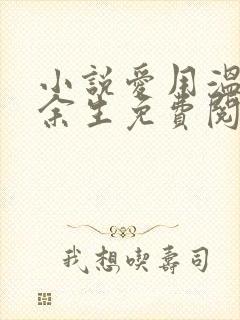 小說愛用溫
余生免費閱
我想喫壽司